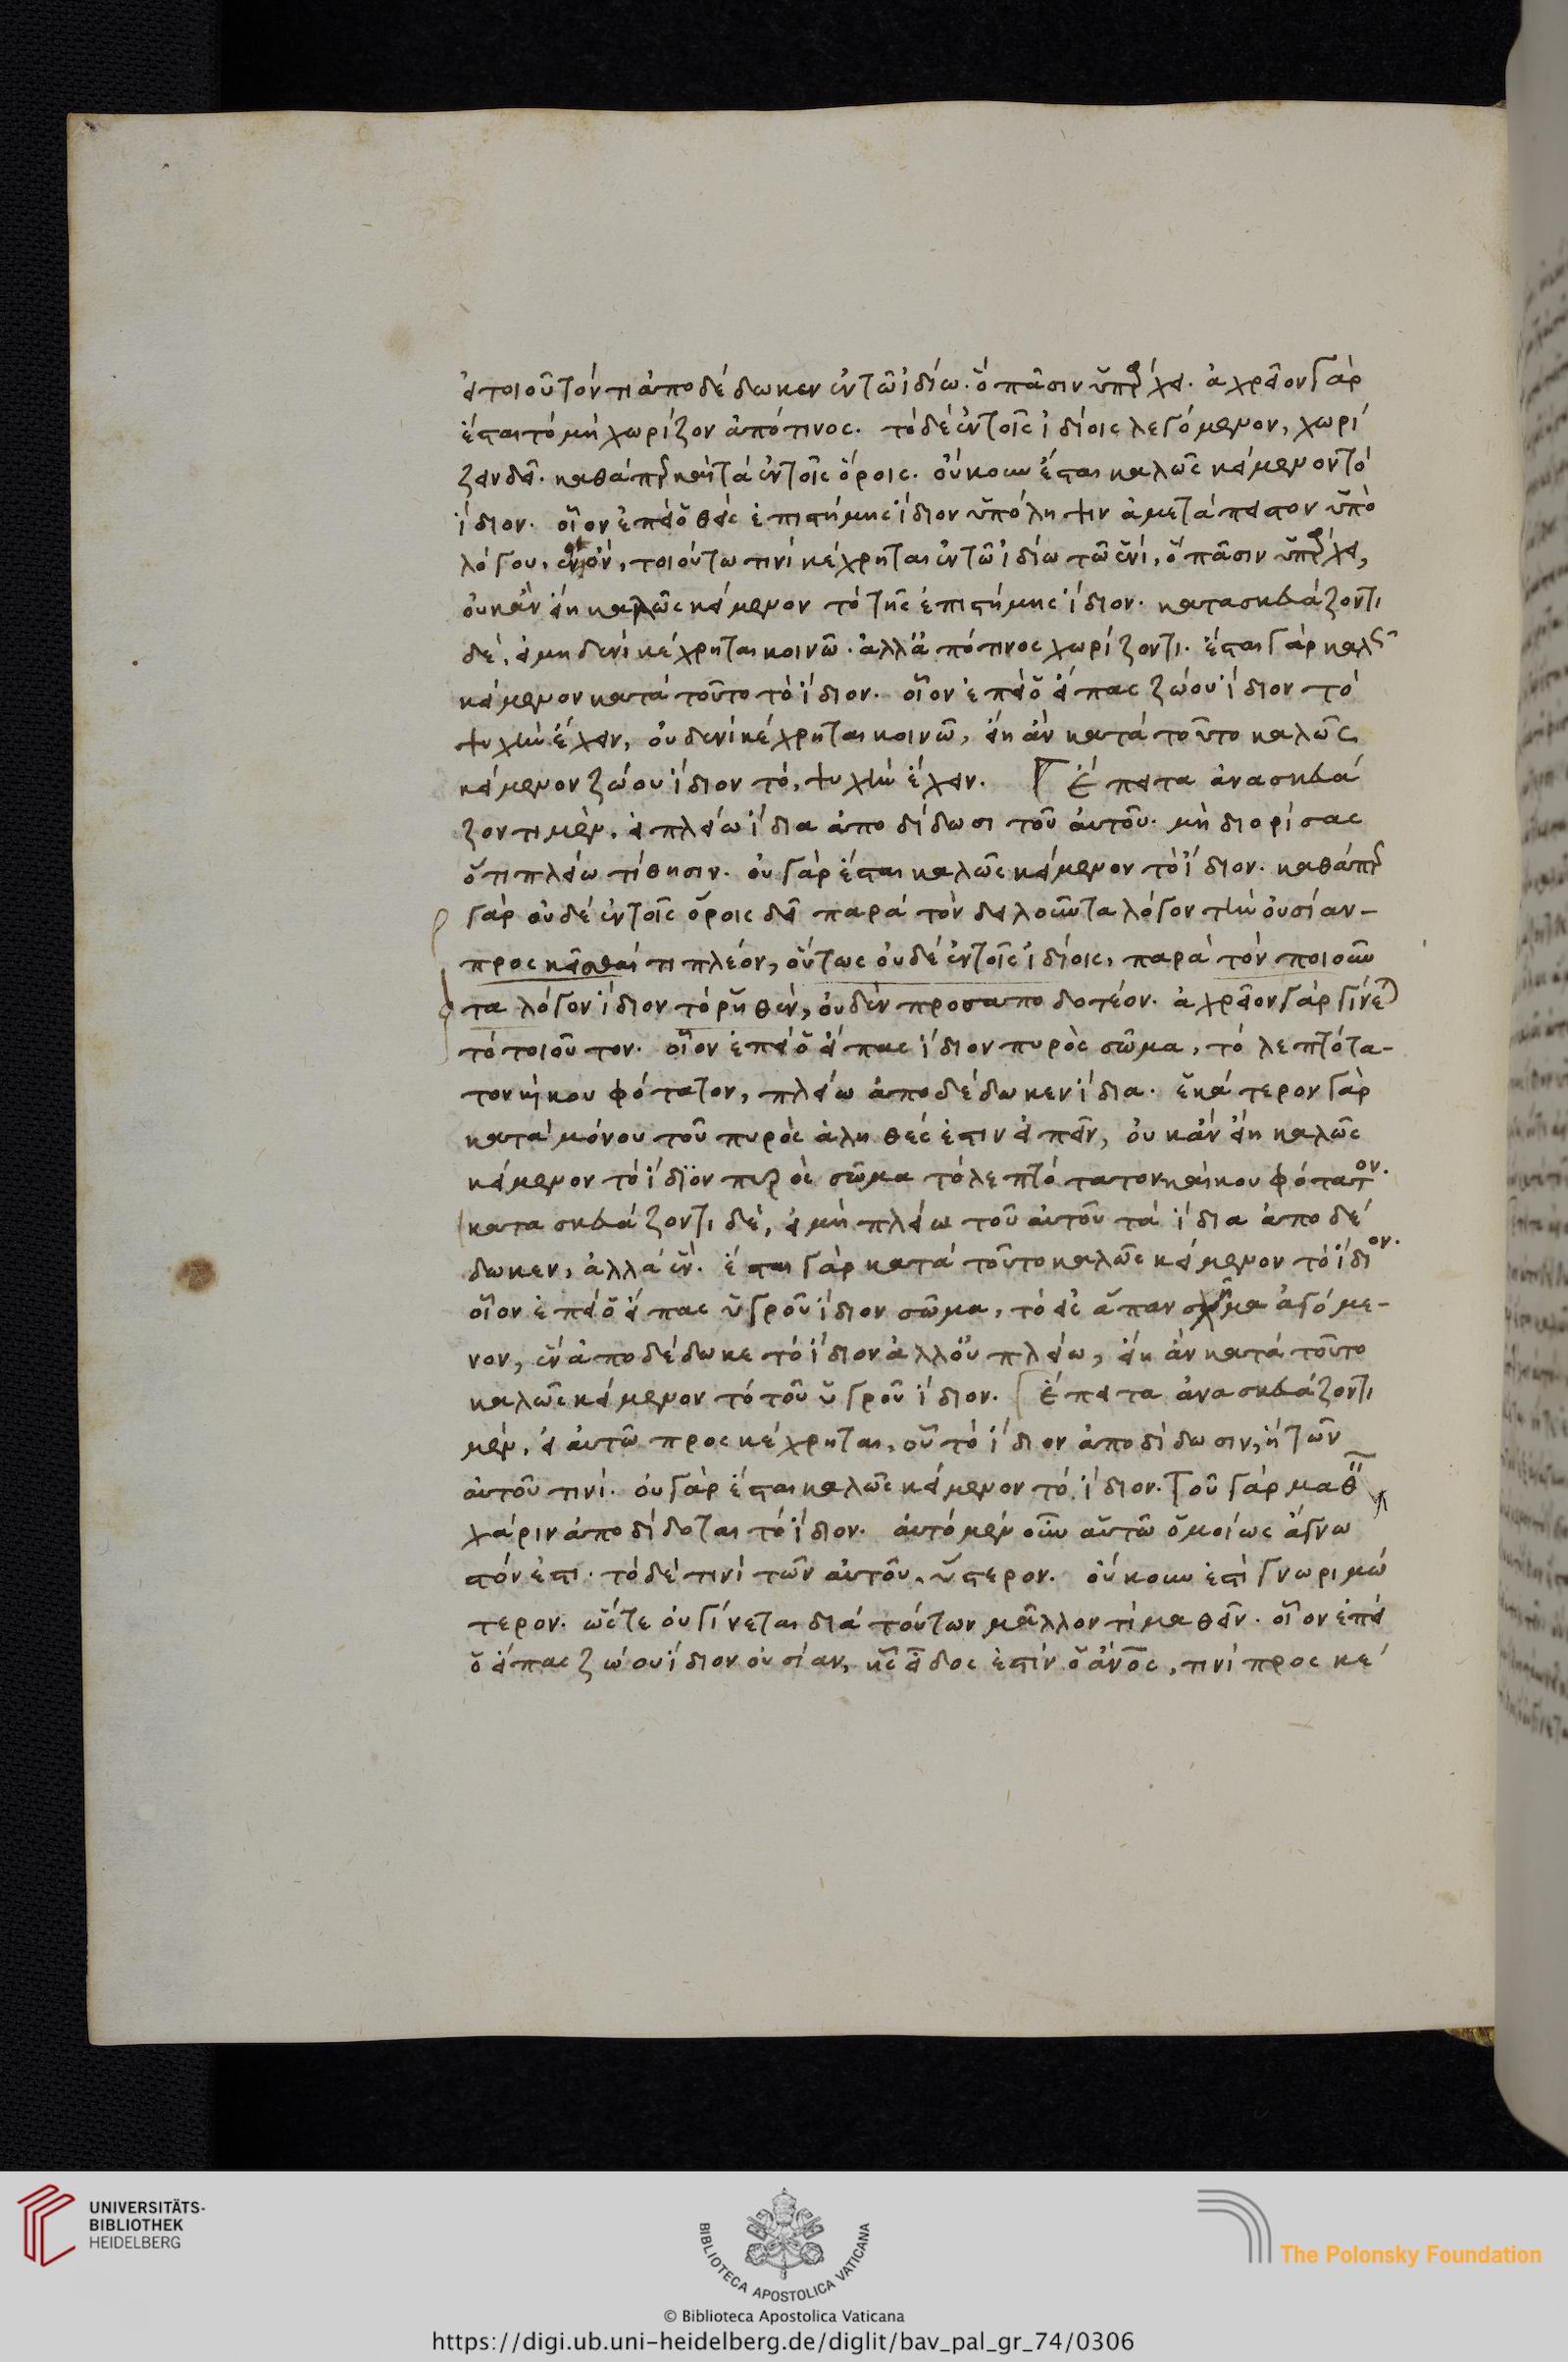 εἰ τοιοῦτόν τι ἀποδέδωκεν ἐν τῶ ἰδίω. ὃ πᾶσιν ὑπάρχει. ἀχρεῖον γὰρ
ἔσται τὸ μὴ χωρίζον ἀπό τινος. τὸ δὲ ἐν τοῖς ἰδίοις λεγόμενον, χωρί
ζειν δεῖ. καθάπερ καὶ τὰ ἐν τοῖς ὅροις. οὔκουν ἔσται καλῶς κείμενον τὸ
ἴδιον. οἷον ἐπεὶ ὁ θεὶς ἐπιστήμης ἴδιον ὑπόληψιν ἀμετάπειστον ὑπὸ
λόγου, ὂν, τοιούτω τινὶ κέχρηται ἐν τῶ ἰδίω τῶ ἑνὶ, ὃ πᾶσιν ὑπάρχει,
οὐκ ἂν εἴη καλῶς κείμενον τὸ τῆς ἐπιστήμης ἴδιον. κατασκευάζοντι
δὲ, εἰ μηδενὶ κέχρηται κοινῶ. ἀλλ' ἀπό τινος χωρίζοντι. ἔσται γὰρ καλῶς
κείμενον κατὰ τοῦτο τὸ ἴδιον. οἷον ἐπεὶ ὁ εἴπας ζώου ἴδιον τὸ
ψυχὴν ἔχειν, οὐδενὶ κέχρηται κοινῶ, εἴη ἂν κατὰ τοῦτο καλῶς
κείμενον ζώου ἴδιον τὸ, ψυχὴν ἔχειν. Ἔπειτα ἀνασκευά
ζοντι μὲν, εἰ πλείω ἴδια ἀποδίδωσι τοῦ αὐτοῦ. μὴ διορίσας
ὅτι πλείω τίθησιν. οὐ γὰρ ἔσται καλῶς κείμενον τὸ ἴδιον. καθάπερ
γὰρ οὐδὲ ἐν τοῖς ὅροις δεῖ παρὰ τὸν δηλοῦντα λόγον τὴν οὐσίαν-
προσκεῖσθαί τι πλέον, οὕτως οὐδὲ ἐν τοῖς ἰδίοις, παρὰ τὸν ποιοῦν
τα λόγον ἴδιον τὸ ῥηθὲν, οὐδὲν προσαποδοτέον. ἀχρεῖον γὰρ γίνεται
τὸ τοιοῦτον. οἷον ἐπεὶ ὁ εἴπας ἴδιον πυρὸς σῶμα, τὸ λεπτότα-
τον καὶ κουφότατον, πλείω ἀποδέδωκεν ἴδια. ἑκάτερον γὰρ
κατὰ μόνου τοῦ πυρὸς ἀληθές ἐστιν εἰπεῖν, οὐκ ἂν εἴη καλῶς
κείμενον τὸ ἴδιον πυρὸς σῶμα τὸ λεπτότατον καὶ κουφότατον.
κατασκευάζοντι δὲ, εἰ μὴ πλείω τοῦ αὐτοῦ τὰ ἴδια ἀποδέ
δωκεν, ἀλλὰ ἕν. ἔσται γὰρ κατὰ τοῦτο καλῶς κείμενον τὸ ἴδιον.
οἷον ἐπεὶ ὁ εἴπας ὑγροῦ ἴδιον σῶμα, τὸ εἰς ἅπαν σχῆμα ἀγόμε-
νον, ἓν ἀποδέδωκε τὸ ἴδιον ἀλλ' οὐ πλείω, εἴη ἂν κατὰ τοῦτο
καλῶς κείμενον τὸ τοῦ ὑγροῦ ἴδιον. Ἔπειτα ἀνασκευάζοντι
μὲν, εἰ αὐτῶ προσκέχρηται, οὗ τὸ ἴδιον ἀποδίδωσιν, ἢ τῶν
αὐτοῦ τινί. οὐ γὰρ ἔσται καλῶς κείμενον τὸ ἴδιον. τοῦ γὰρ μαθεῖν
χάριν ἀποδίδοται τὸ ἴδιον. αὐτὸ μὲν οὖν αὑτῶ ὁμοίως ἄγνω
στόν ἐστι. τὸ δέ τινι τῶν αὐτοῦ, ὕστερον. οὔκουν ἐστὶ γνωριμώ
τερον. ὥστε οὐ γίνεται διὰ τούτων μᾶλλόν τι μαθεῖν. οἷον ἐπεὶ
ὁ εἴπας ζώου ἴδιον οὐσίαν, ἧς εἶδός ἐστιν ὁ ἄνος, τινὶ προσκέ
UNIVERSITÄTS-
BIBLIOTHEK
HEIDELBERG
BIBLIOTECA APOSTOLICA VATICANA
The Polonsky Foundation
© Biblioteca Apostolica Vaticana
https://digi.ub.uni-heidelberg.de/diglit/bav_pal_gr_74/0306